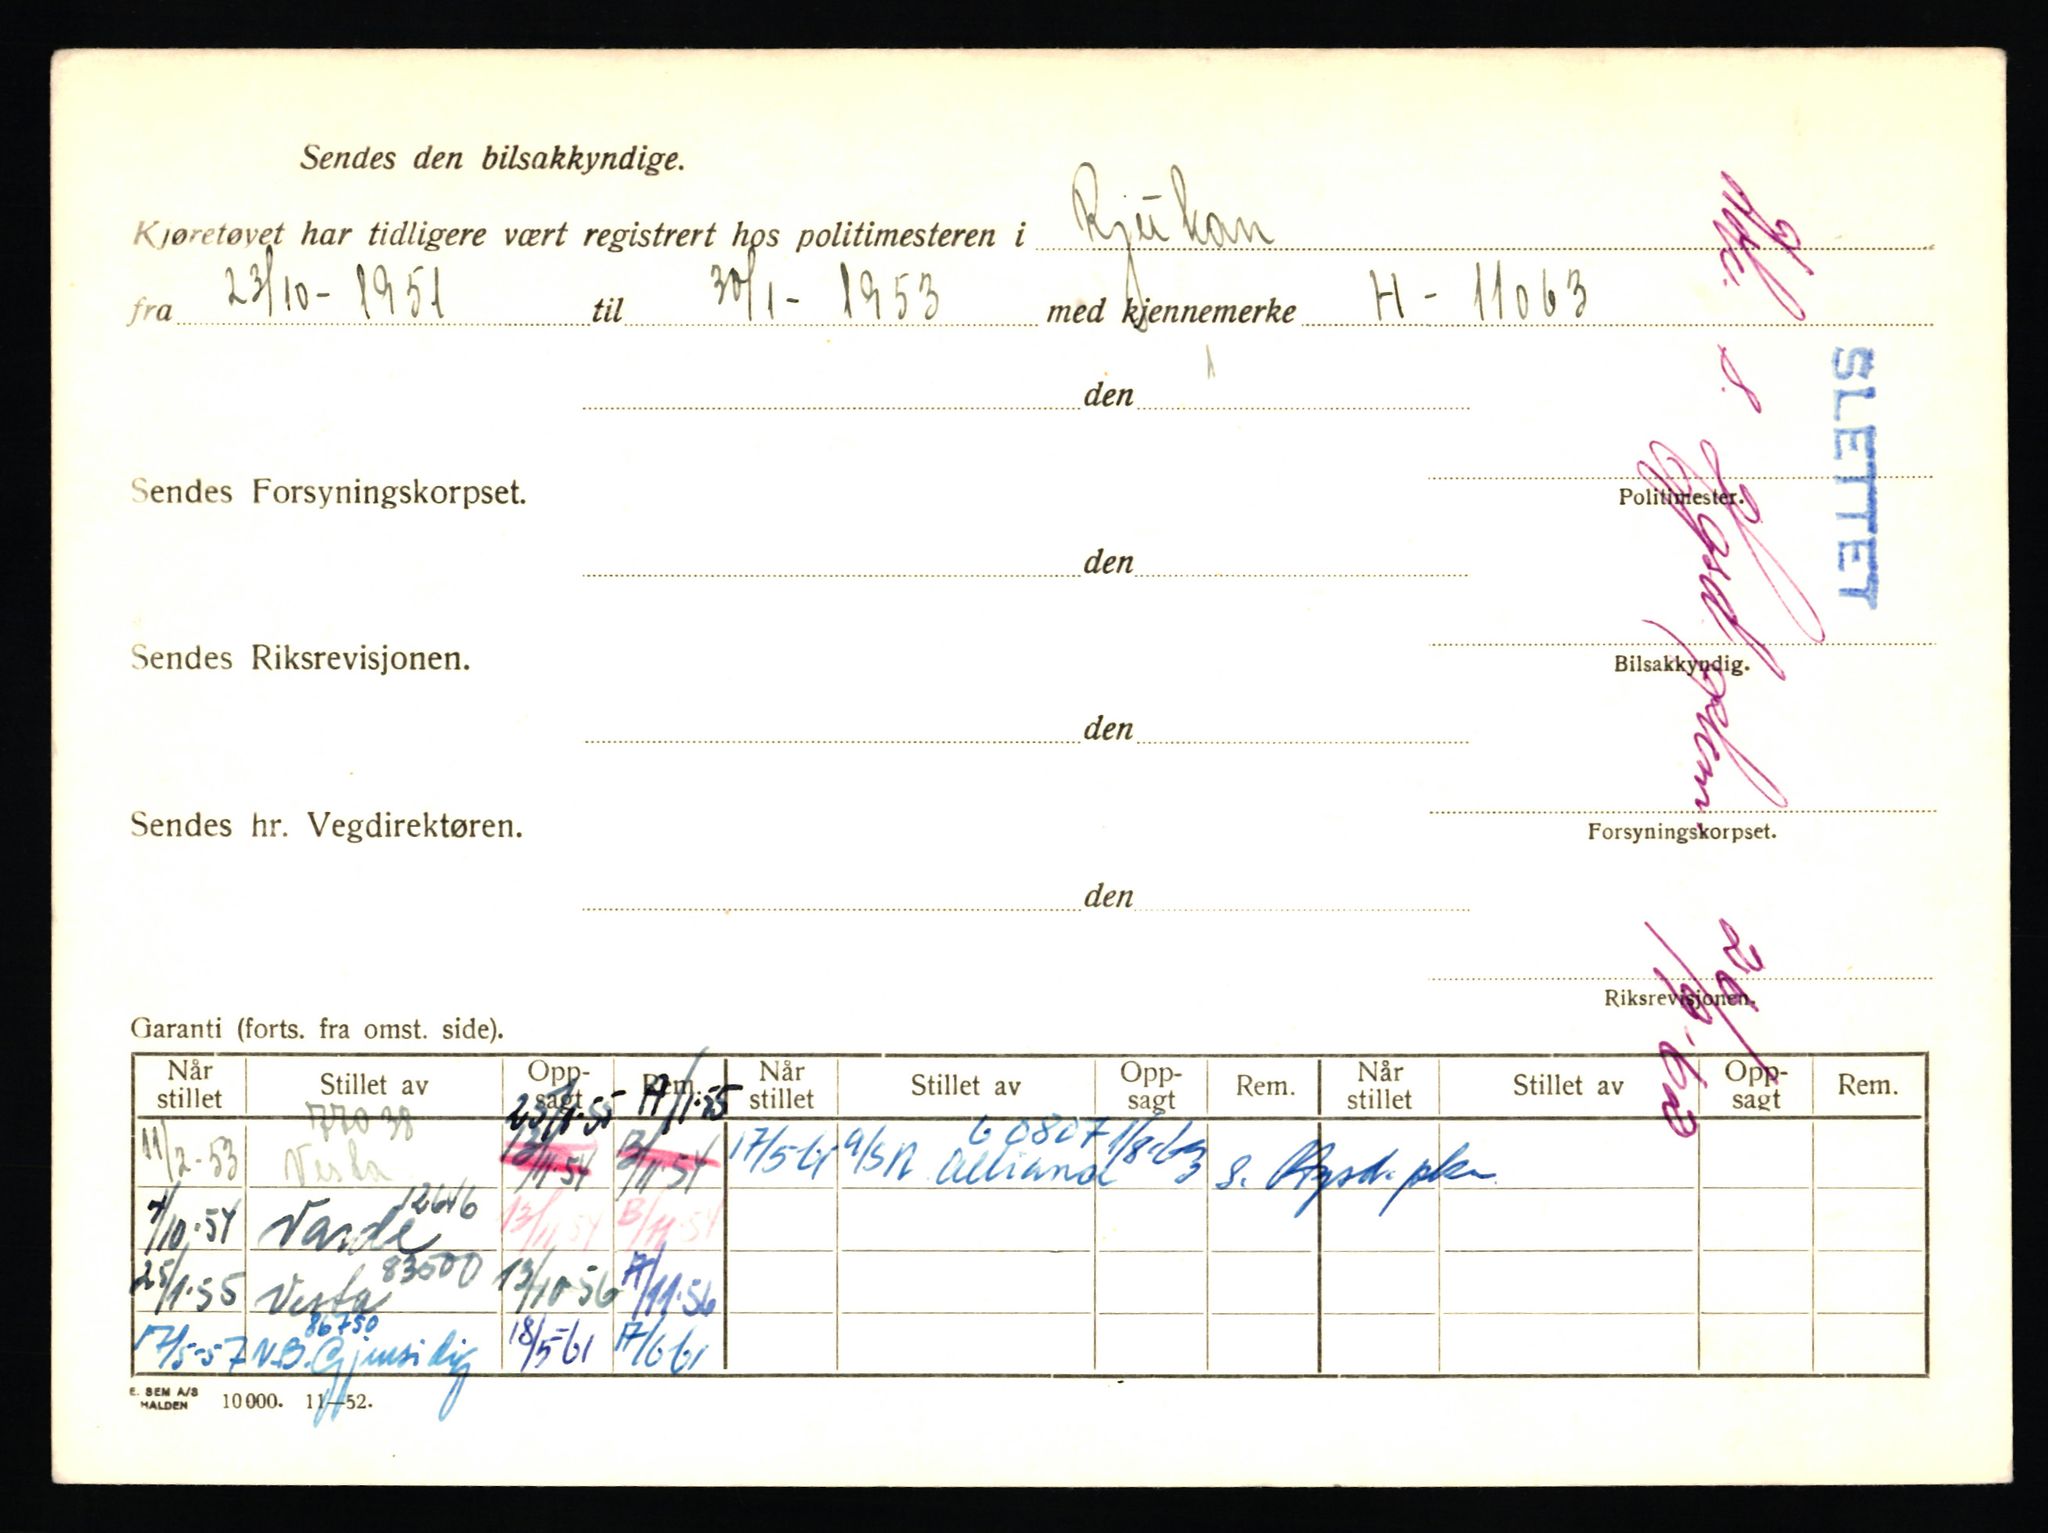 Sendes den bilsakkyndige.
Kjøretøyet har tidligere vært registrert hos politimesteren i Rjukan
fra 23/10 - 1951 til 30/1 - 1953 med kjennemerke H - 11063
SLETTET
den
Politimester.
Sendes Forsyningskorpset.
den
Bilsakkyndig.
Sendes Riksrevisjonen.
den
Forsyningskorpset.
Sendes hr. Vegdirektøren.
den
Riksrevisjonen.
26/9.63
Garanti (forts. fra omst. side).
Når stillet Stillet av Opp-sagt Rem. Når stillet Stillet av Opp-sagt Rem. Når stillet Stillet av Opp-sagt Rem.
77038 23/1.55 17/1.55 60807
11/2-53 Vesta 13/11.54 13/11.54 17/5-61 a/s N. Alliance 1/8-63 s.
12646
4/10.54 Varde 13/11.54 13/11.54
83500
25/1.55 Vesta 13/10-56 17/11.56
86750
17/5-57 N.B. Gjensidig 18/5-61 17/6 61
E. SEM A/S HALDEN 10000. 11—52.